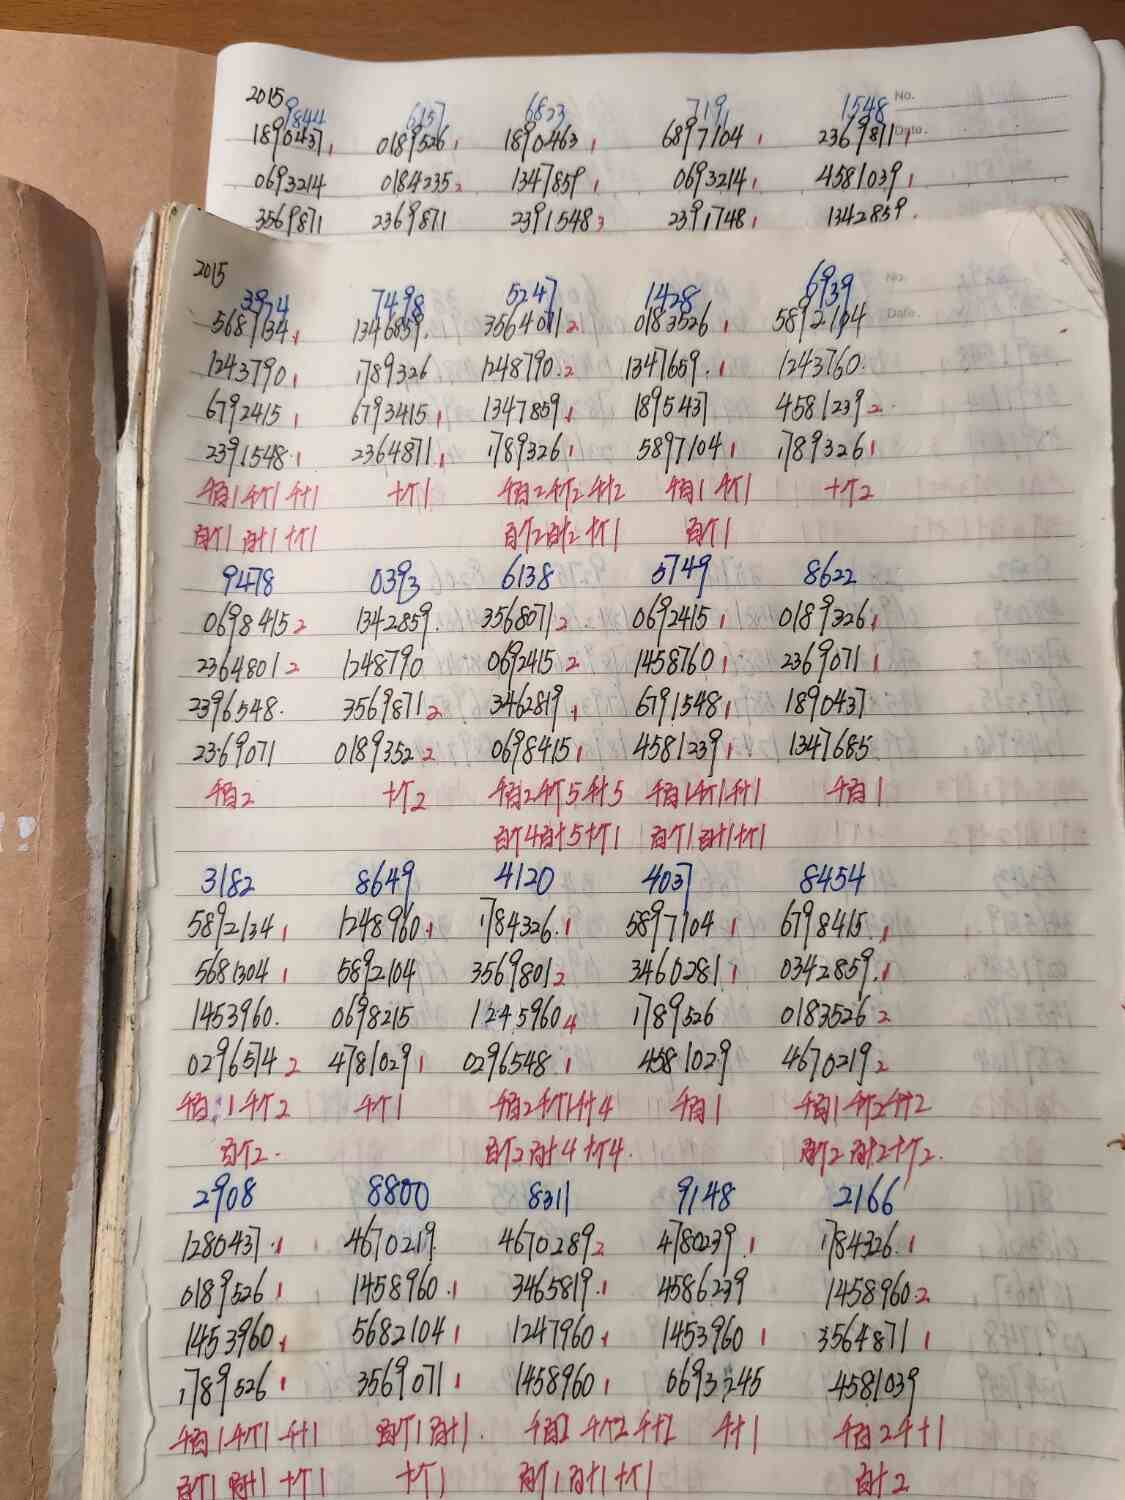 2015
9844 6157 6823 7191 1548 No.
1890437 1 0189526 1 1890463 1 6897104 1 2369871 1 Date.
0693214 0184235 2 1347859 1 0693214 1 4581039 1
3569871 2369871 2391548 3 2391748 1 1342859.
2015
3974 7498 5247 1428 6939 No.
5687134 1 1346859. 3564071 2 0183526 1 5892104 Date.
1243790 1 1789326 1248790.2 1347659.1 1243760.
6792415 1 6793415 1 1347859 1 1895437 4581239 2
2391548.1 2364871 1 1789326 1 5897104 1 1789326 1
千百1千个1千十1 十个1 千百2千个2千十2 千百1千个1 十个2
百个1百十1十个1 百个2百十2十个1 百个1
9478 0393 6138 5749 8622
0698415 2 1342859. 3568071 2 0692415 1 0189326 1
2364801 2 1248790 0692415 2 1458760 1 2369071 1
2396548. 3569871 2 3462819 1 6791548 1 1890437
2369071 0189352 2 0698415 1 4581239 1 1347685
千百2 十个2 千百2千个5千十5 千百1千个1千十1 千百1
百个4百十5十个1 百个1百十1十个1
3182 8649 4120 4037 8454
5892134 1 1248960.1 1784326.1 5897104 1 6798415 1
5681304 1 5892104 3569801 2 3460281 1 0342859.1
1453960. 0698215 1245960 4 1789526 0183526 2
0296574 2 4781029 1 0296548.1 4581029 4670219 2
千百1千个2 千个1 千百2千个1千十4 千百1 千百1千个2千十2
百个2. 百个2百十4十个4. 百个2百十2十个2.
2908 8800 8311 9148 2166
1280437.1 4670219. 4670289 2 4780239.1 1784326.1
0189526 1 1458960.1 3465819.1 4586239 1458960.2
1453960 1 5682104 1 1247960 1 1453960 1 3564871 1
1789526 1 3569071 1 1458960 1 0693245 4581039
千百1千个1千十1 百个1百十1. 千百2千个2千十2 千十1 千百2千十1
百个1百十1十个1 十个1 百个1百十1十个1 百十2